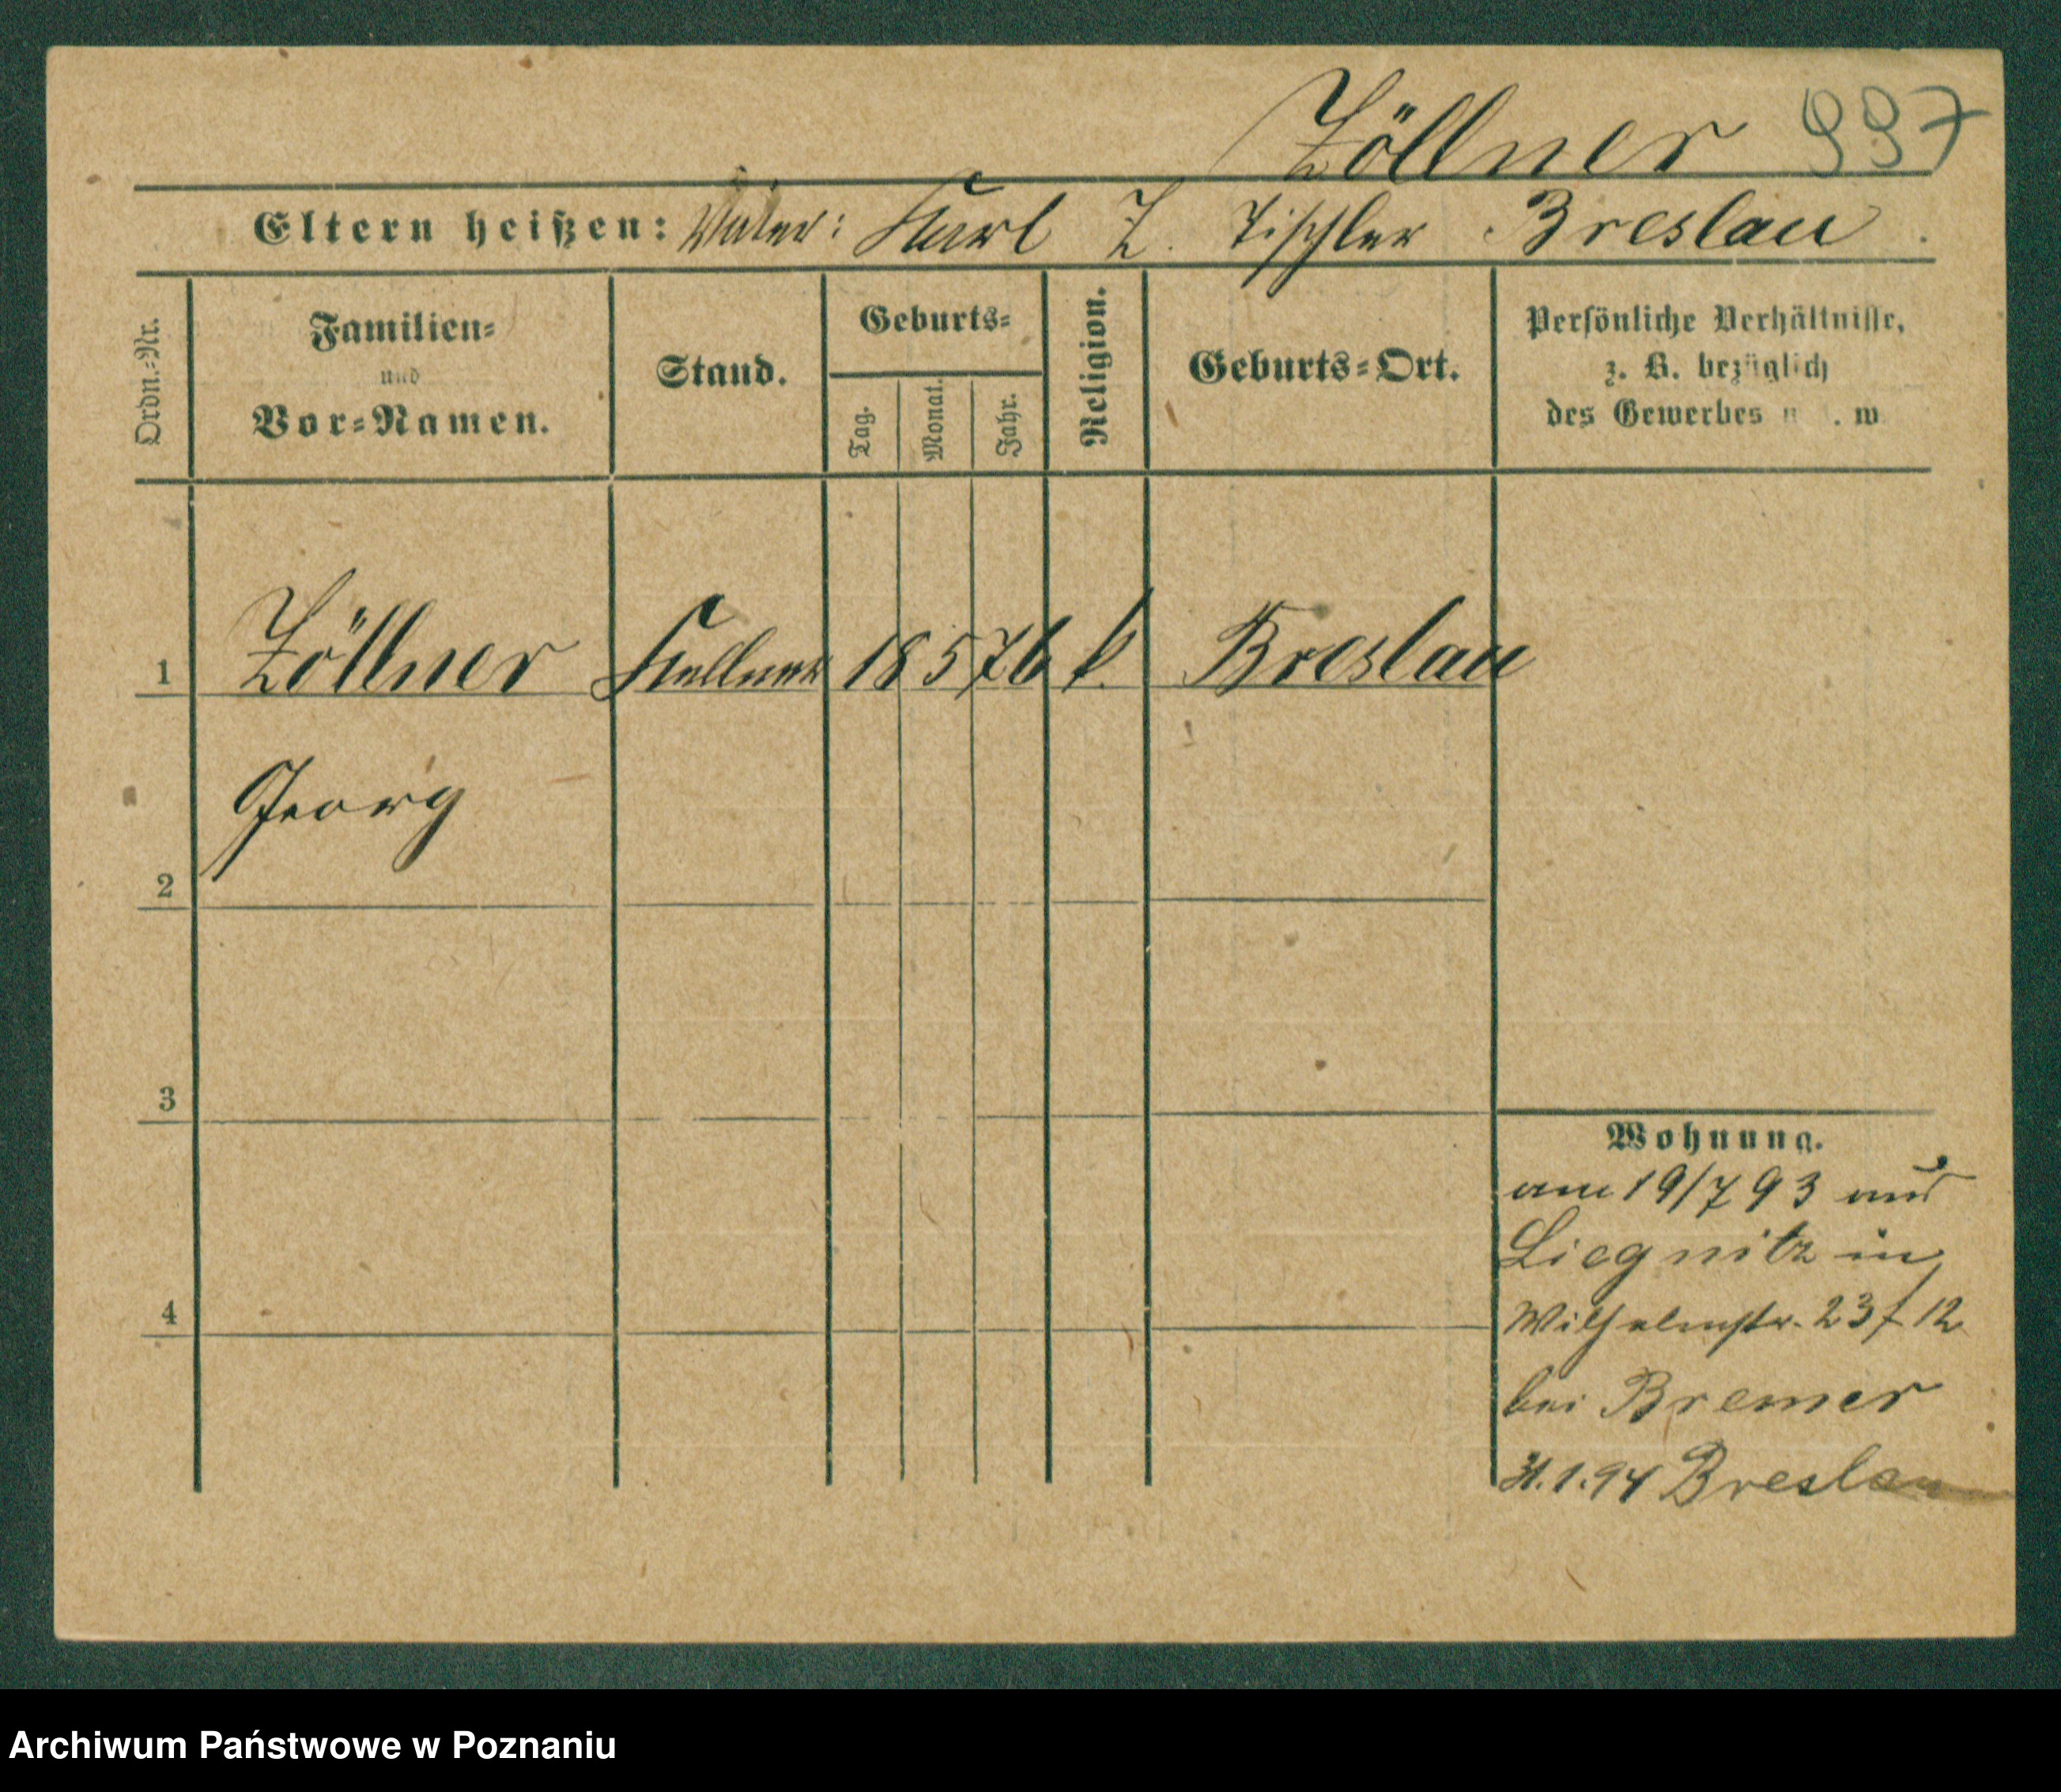 Zöllner 997
Eltern heißen: Vater: Karl Z. Tischler Breslau.
Ordn.-Nr.
Familien-
und
Vor-Namen.
Stand.
Geburts-
Tag.
Monat.
Jahr.
Religion.
Geburts-Ort.
Persönliche Verhältnisse,
z. B. bezüglich
des Gewerbes u. . w
1 Zöllner Kellner 18 5 76 k. Breslau
Georg
2
3
4
Wohnung.
am 19/7 93 aus
Liegnitz in
Wilhelmstr. 23 f 12
bei Bremer
31.1.94 Breslau
Archiwum Państwowe w Poznaniu